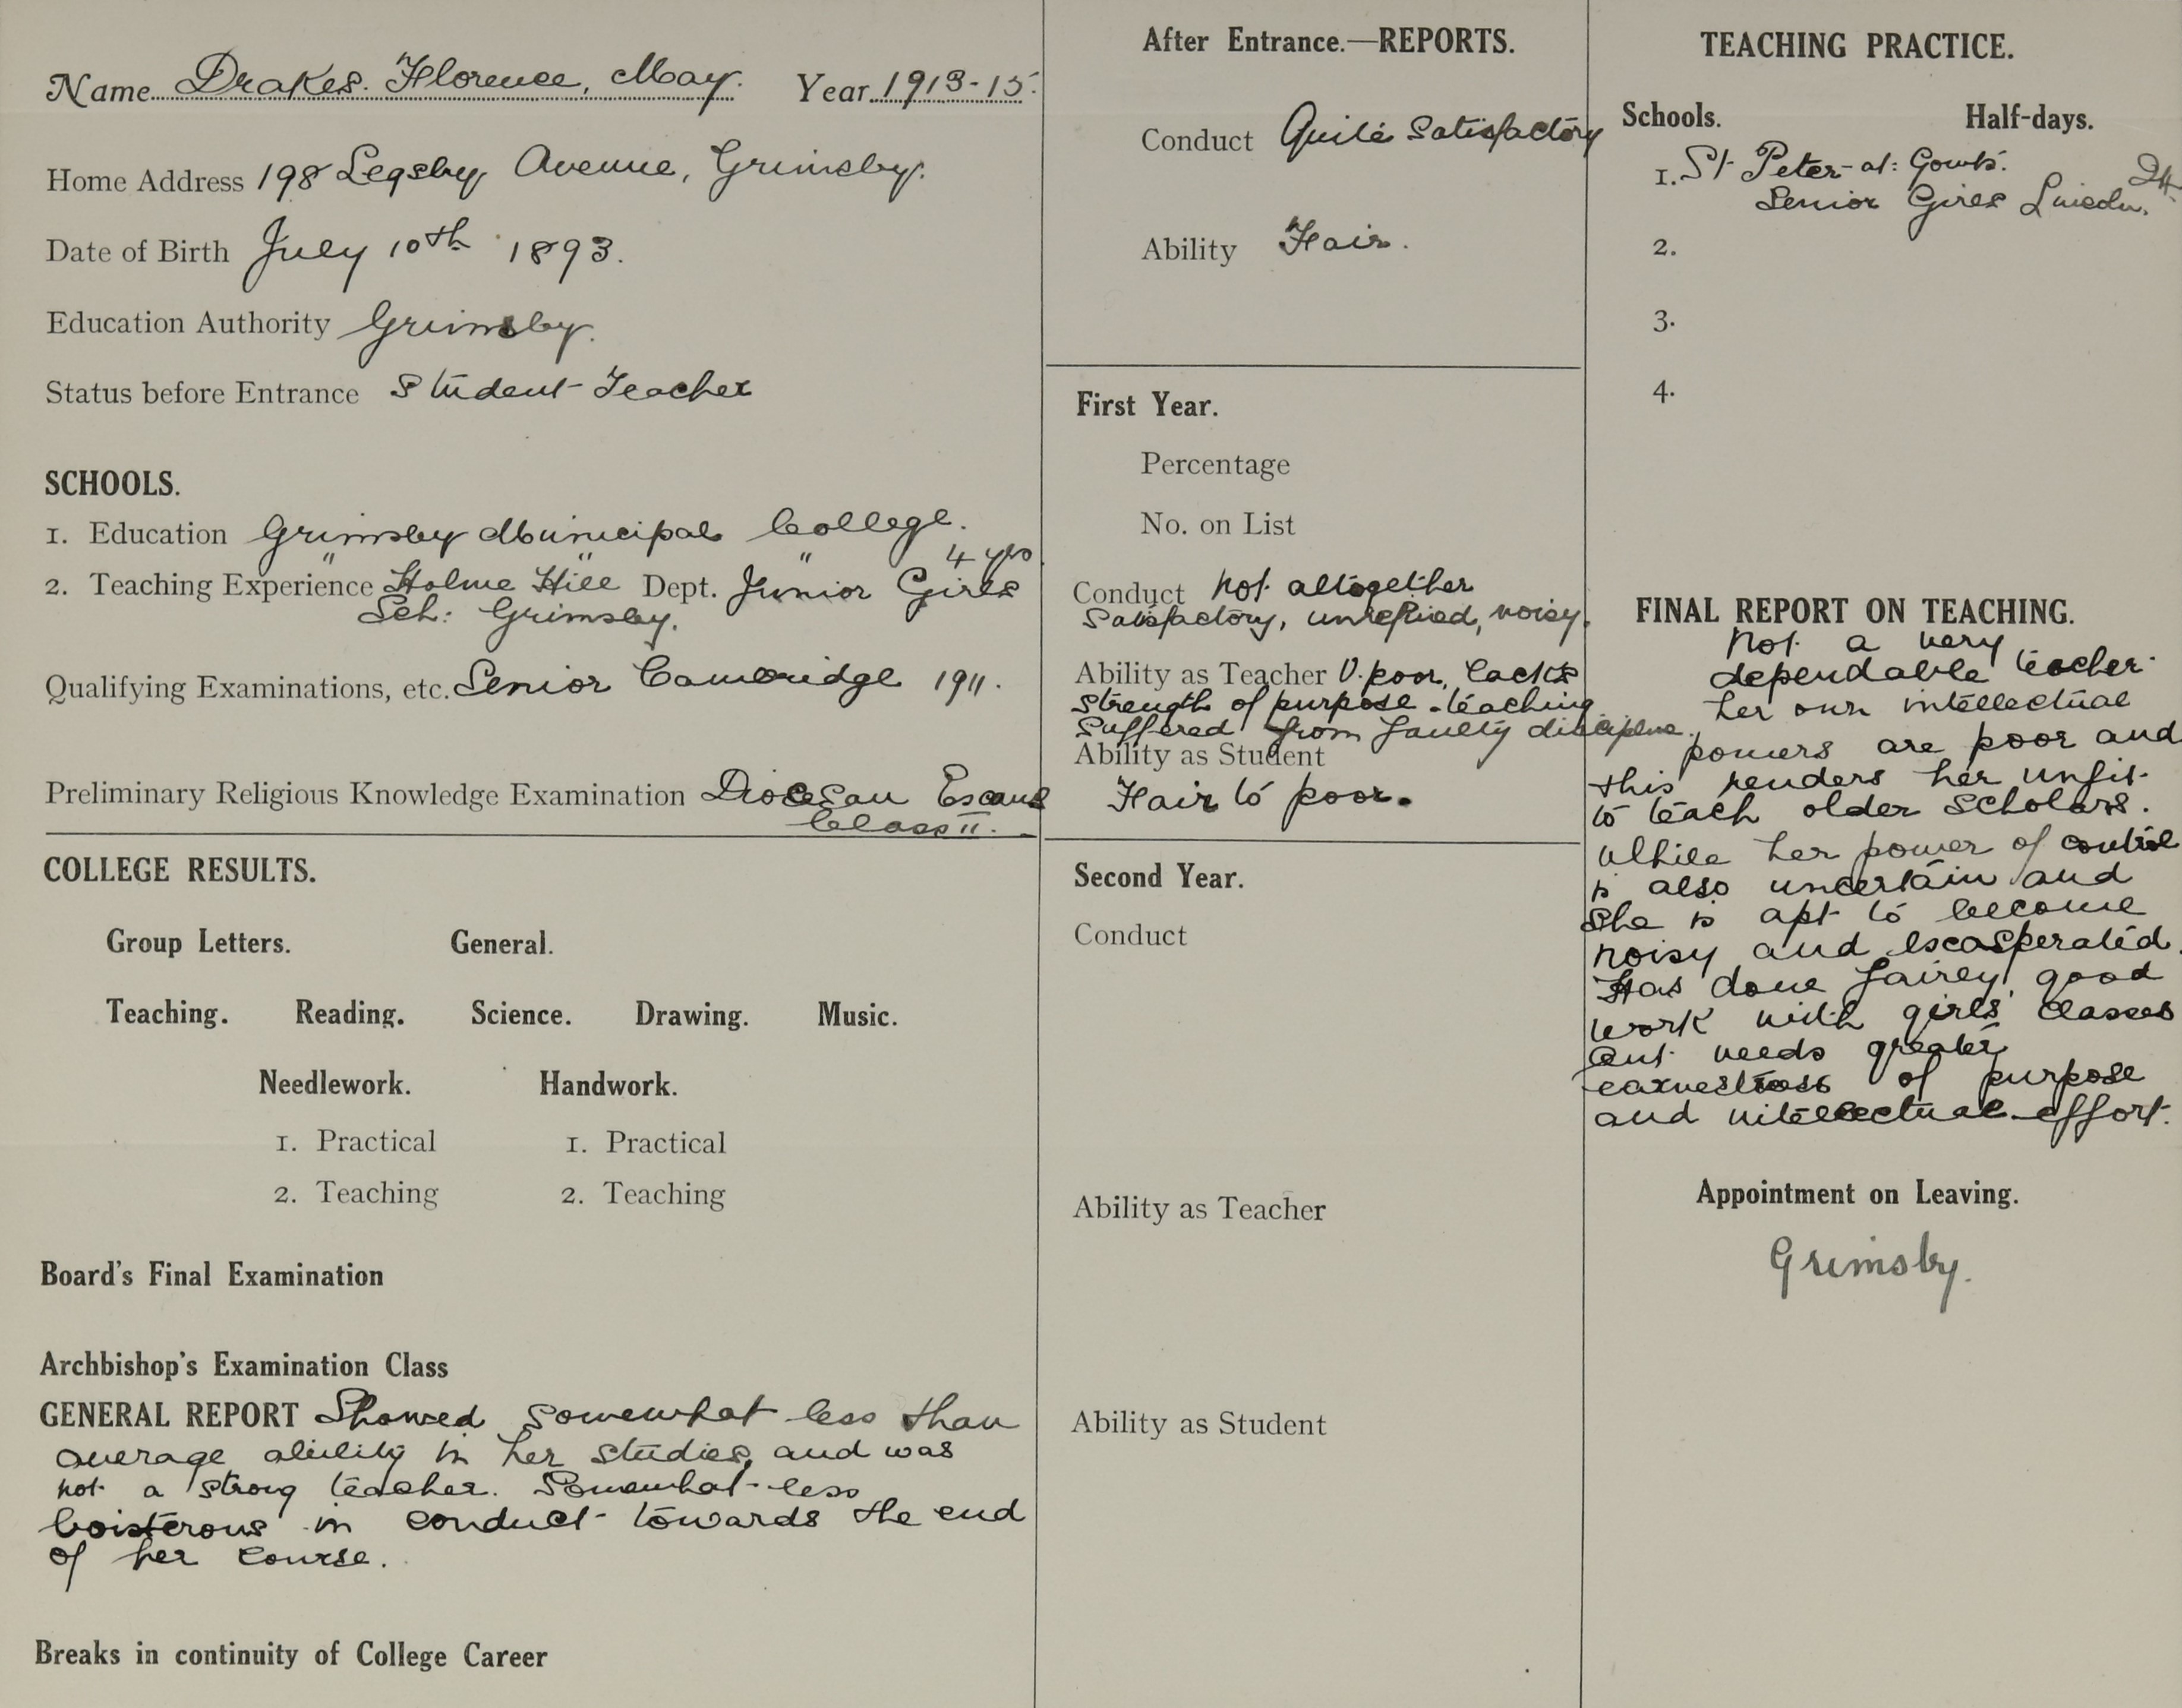 Name Drakes. Florence, May. Year 1913-15.
Home Address 198 Legsby Avenue, Grimsby.
Date of Birth July 10th 1893.
Education Authority Grimsby.
Status before Entrance Student Teacher
SCHOOLS.
1. Education Grimsby Municipal College.
" " " 4 yrs
2. Teaching Experience Holme Hill Dept. Junior Girls
Sch: Grimsby.
Qualifying Examinations, etc. Senior Cambridge 1911.
Preliminary Religious Knowledge Examination Diocesan Exam
Class II.
COLLEGE RESULTS.
Group Letters. General.
Teaching. Reading. Science. Drawing. Music.
Needlework. Handwork.
1. Practical 1. Practical
2. Teaching 2. Teaching
Board's Final Examination
Archbishop's Examination Class
GENERAL REPORT Showed somewhat less than
average ability in her studies, and was
not a strong teacher. Somewhat less
boisterous in conduct towards the end
of her course.
Breaks in continuity of College Career
After Entrance.—REPORTS.
Conduct Quite Satisfactory
Ability Fair.
First Year.
Percentage
No. on List
Conduct Not altogether
Satisfactory, unrefined, noisy.
Ability as Teacher V. poor, lacks
strength of purpose - teaching
suffered from faulty discipline.
Ability as Student
Fair to poor.
Second Year.
Conduct
Ability as Teacher
Ability as Student
TEACHING PRACTICE.
Schools. Half-days.
1. St Peter-at: Gowts.
Senior Girls Lincoln. 24
2.
3.
4.
FINAL REPORT ON TEACHING.
Not a very
dependable teacher.
her own intellectual
powers are poor and
this renders her unfit
to teach older scholars.
While her power of control
is also uncertain and
she is apt to become
noisy and exasperated.
Has done fairly good
work with girls' classes
but needs greater
earnestness of purpose
and intellectual effort.
Appointment on Leaving.
Grimsby.